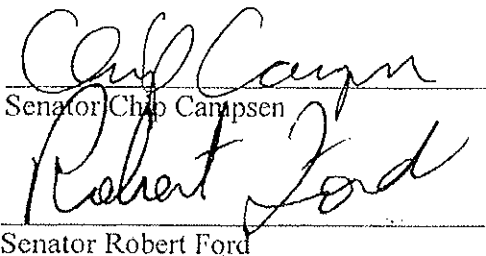 Chip Campsen
Senator Chip Campsen
Robert Ford
Senator Robert Ford